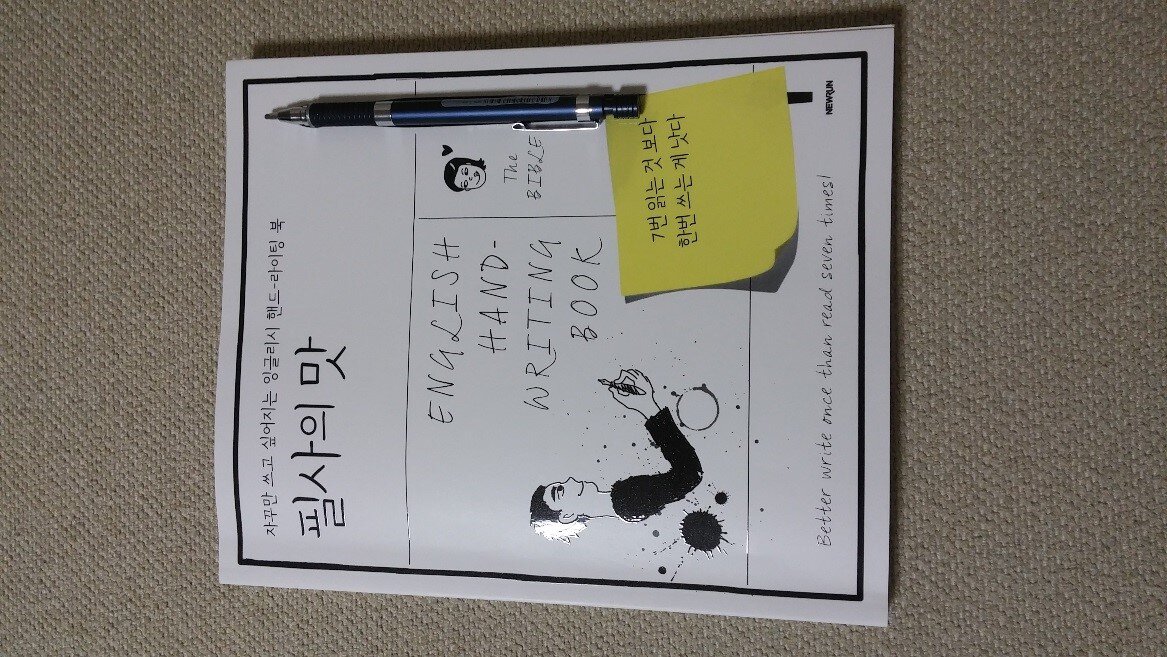 자꾸만 쓰고 싶어지는 잉글리시 핸드-라이팅 북
필사의 맛
ENGLISH
HAND-
WRITING
BOOK
The
BIBLE
7번 읽는 것 보다
한번 쓰는 게 낫다
Better write once than read seven times!
NEWRUN